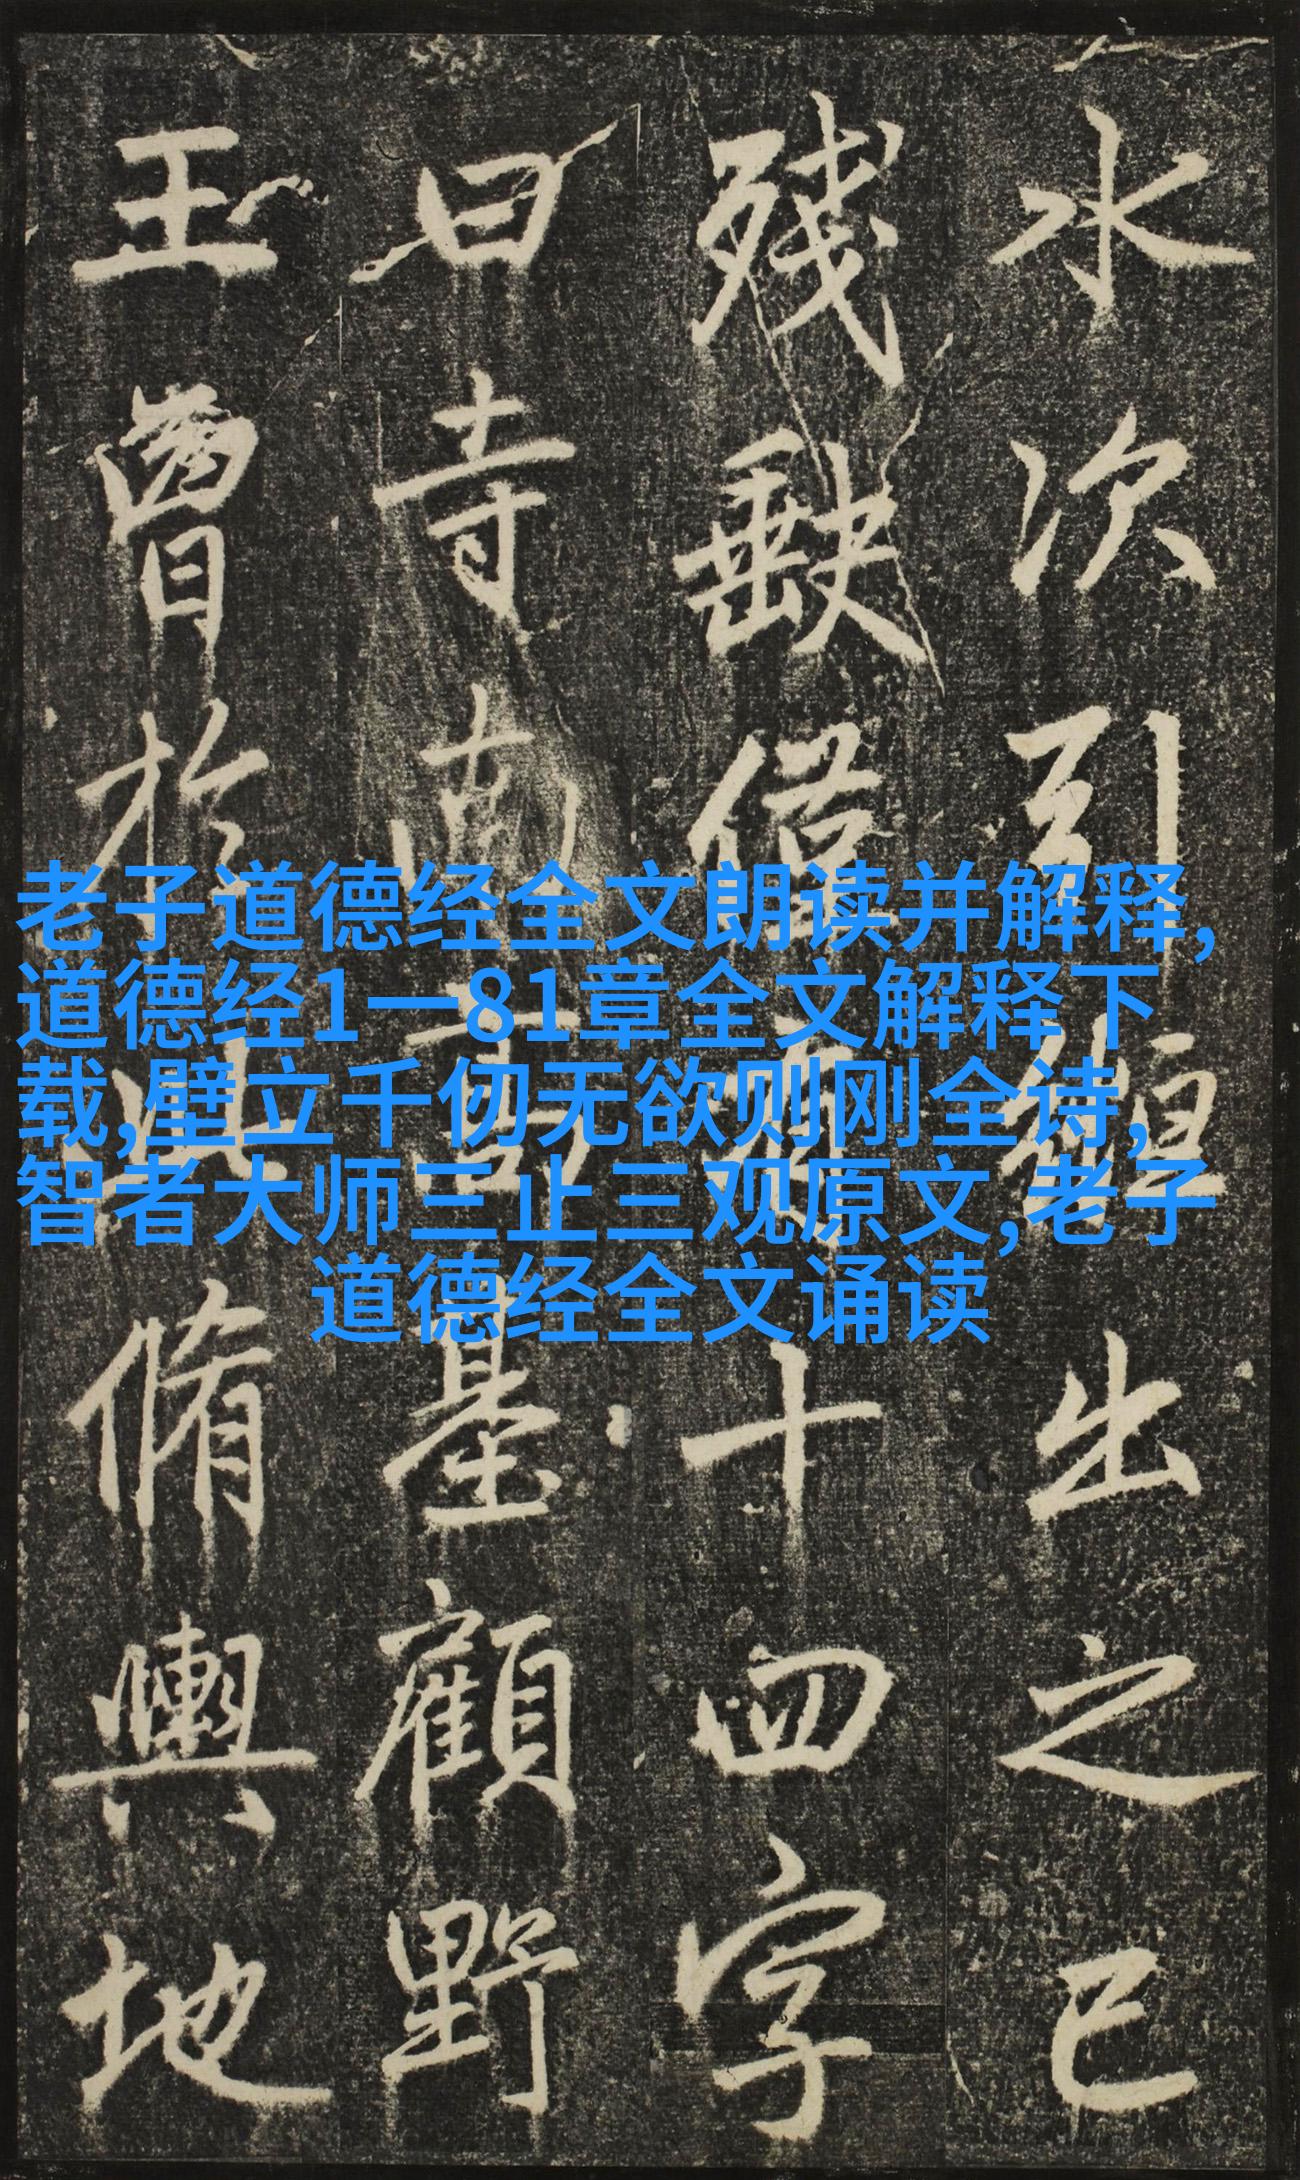 水次引縆出之已
殘缺僅存十四字
曰寺南高基顧野
王曾於此脩輿地
老子道德经全文朗读并解释,
道德经1一81章全文解释下
载,壁立千仞无欲则刚全诗,
智者大师三止三观原文,老子
道德经全文诵读